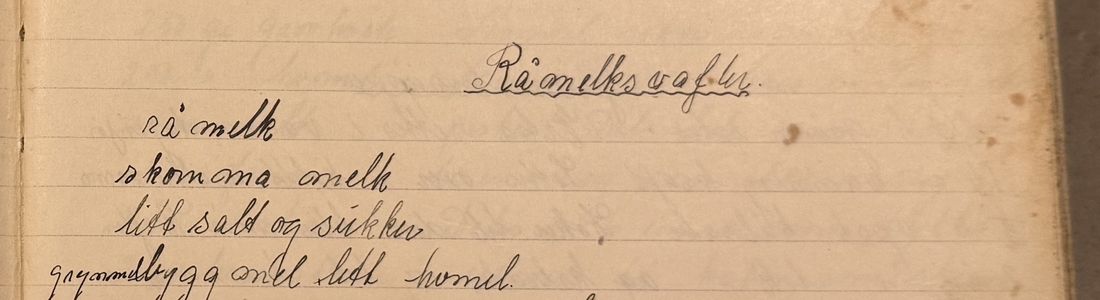 Råmelksvafler.
rå melk
skomma melk
litt salt og sukker
bygg mel litt hvmel.